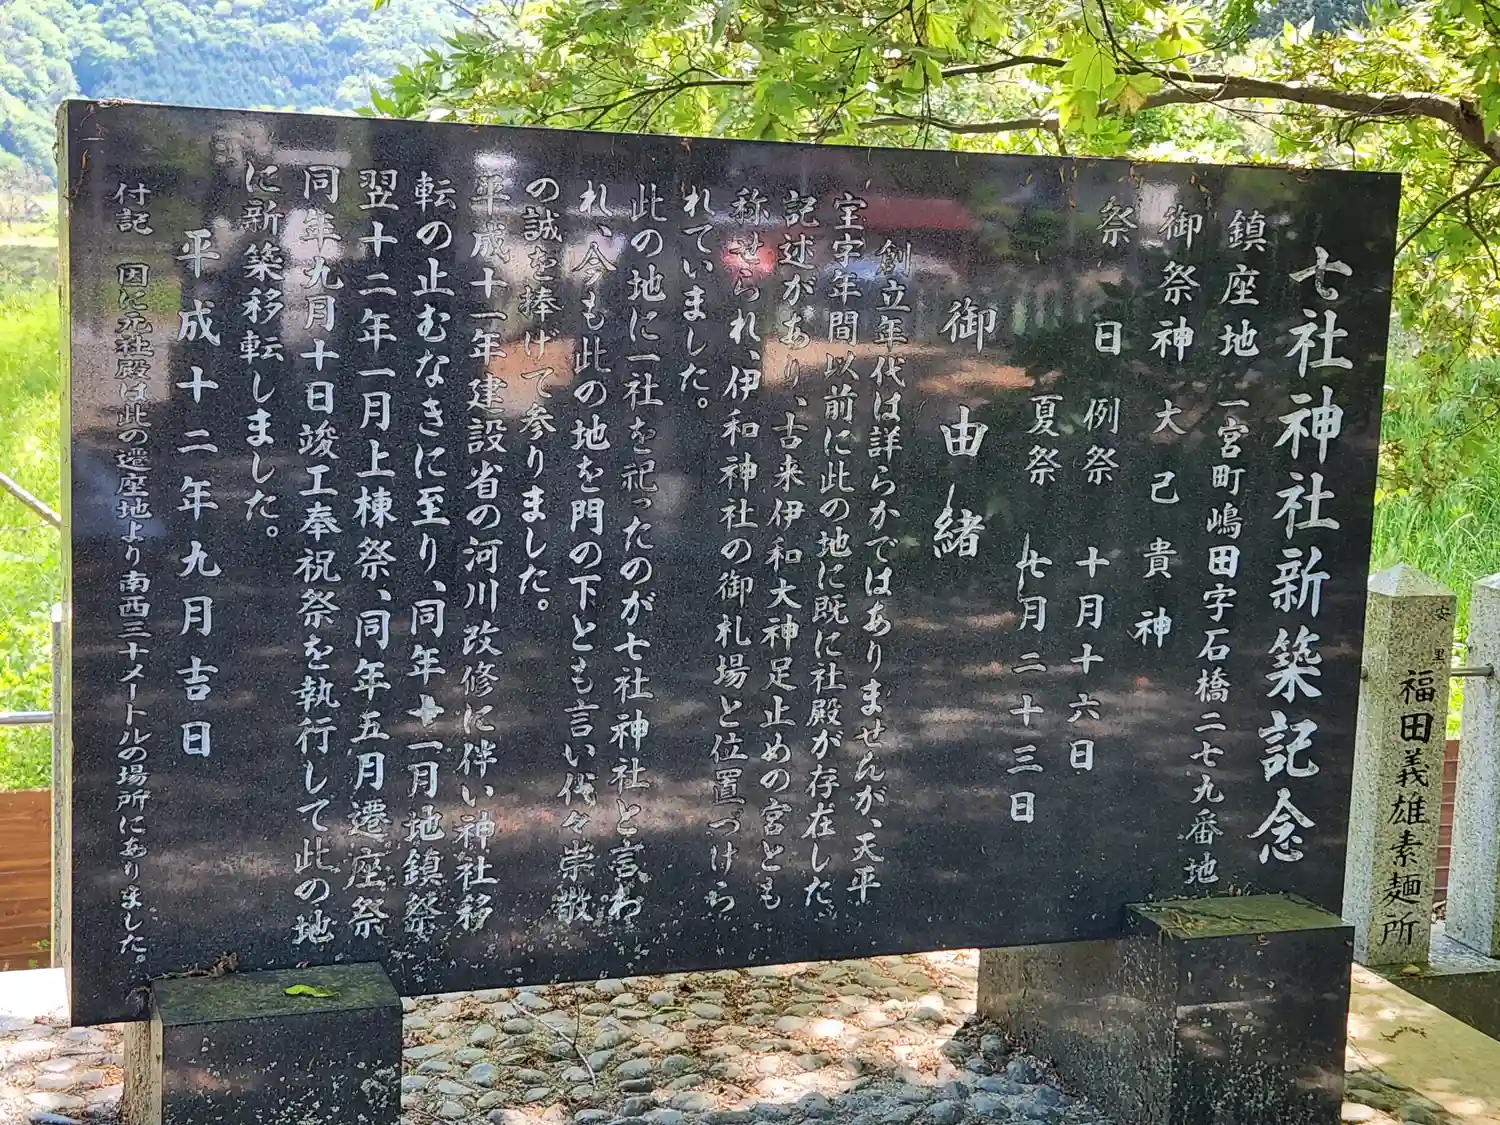 七社神社新築記念
鎮座地 一宮町嶋田字石橋二七九番地
御祭神 大己貴神
祭日 例祭 十月十六日
夏祭 七月二十三日
御由緒
創立年代は詳らかではありませんが、天平
宝字年間以前に此の地に既に社殿が存在した
記述があり、古来伊和大神足止めの宮とも
称せられ、伊和神社の御札場と位置づけら
れていました。
此の地に一社を祀ったのが七社神社と言わ
れ、今も此の地を門の下とも言い代々崇敬
の誠を捧げて参りました。
平成十一年建設省の河川改修に伴い神社移
転の止むなきに至り、同年十一月地鎮祭
翌十二年一月上棟祭、同年五月遷座祭
同年九月十日竣工奉祝祭を執行して此の地
に新築移転しました。
平成十二年九月吉日
付記 因に元社殿は此の遷座地より南西三十メートルの場所にありました。
安里
福田義雄素麺所